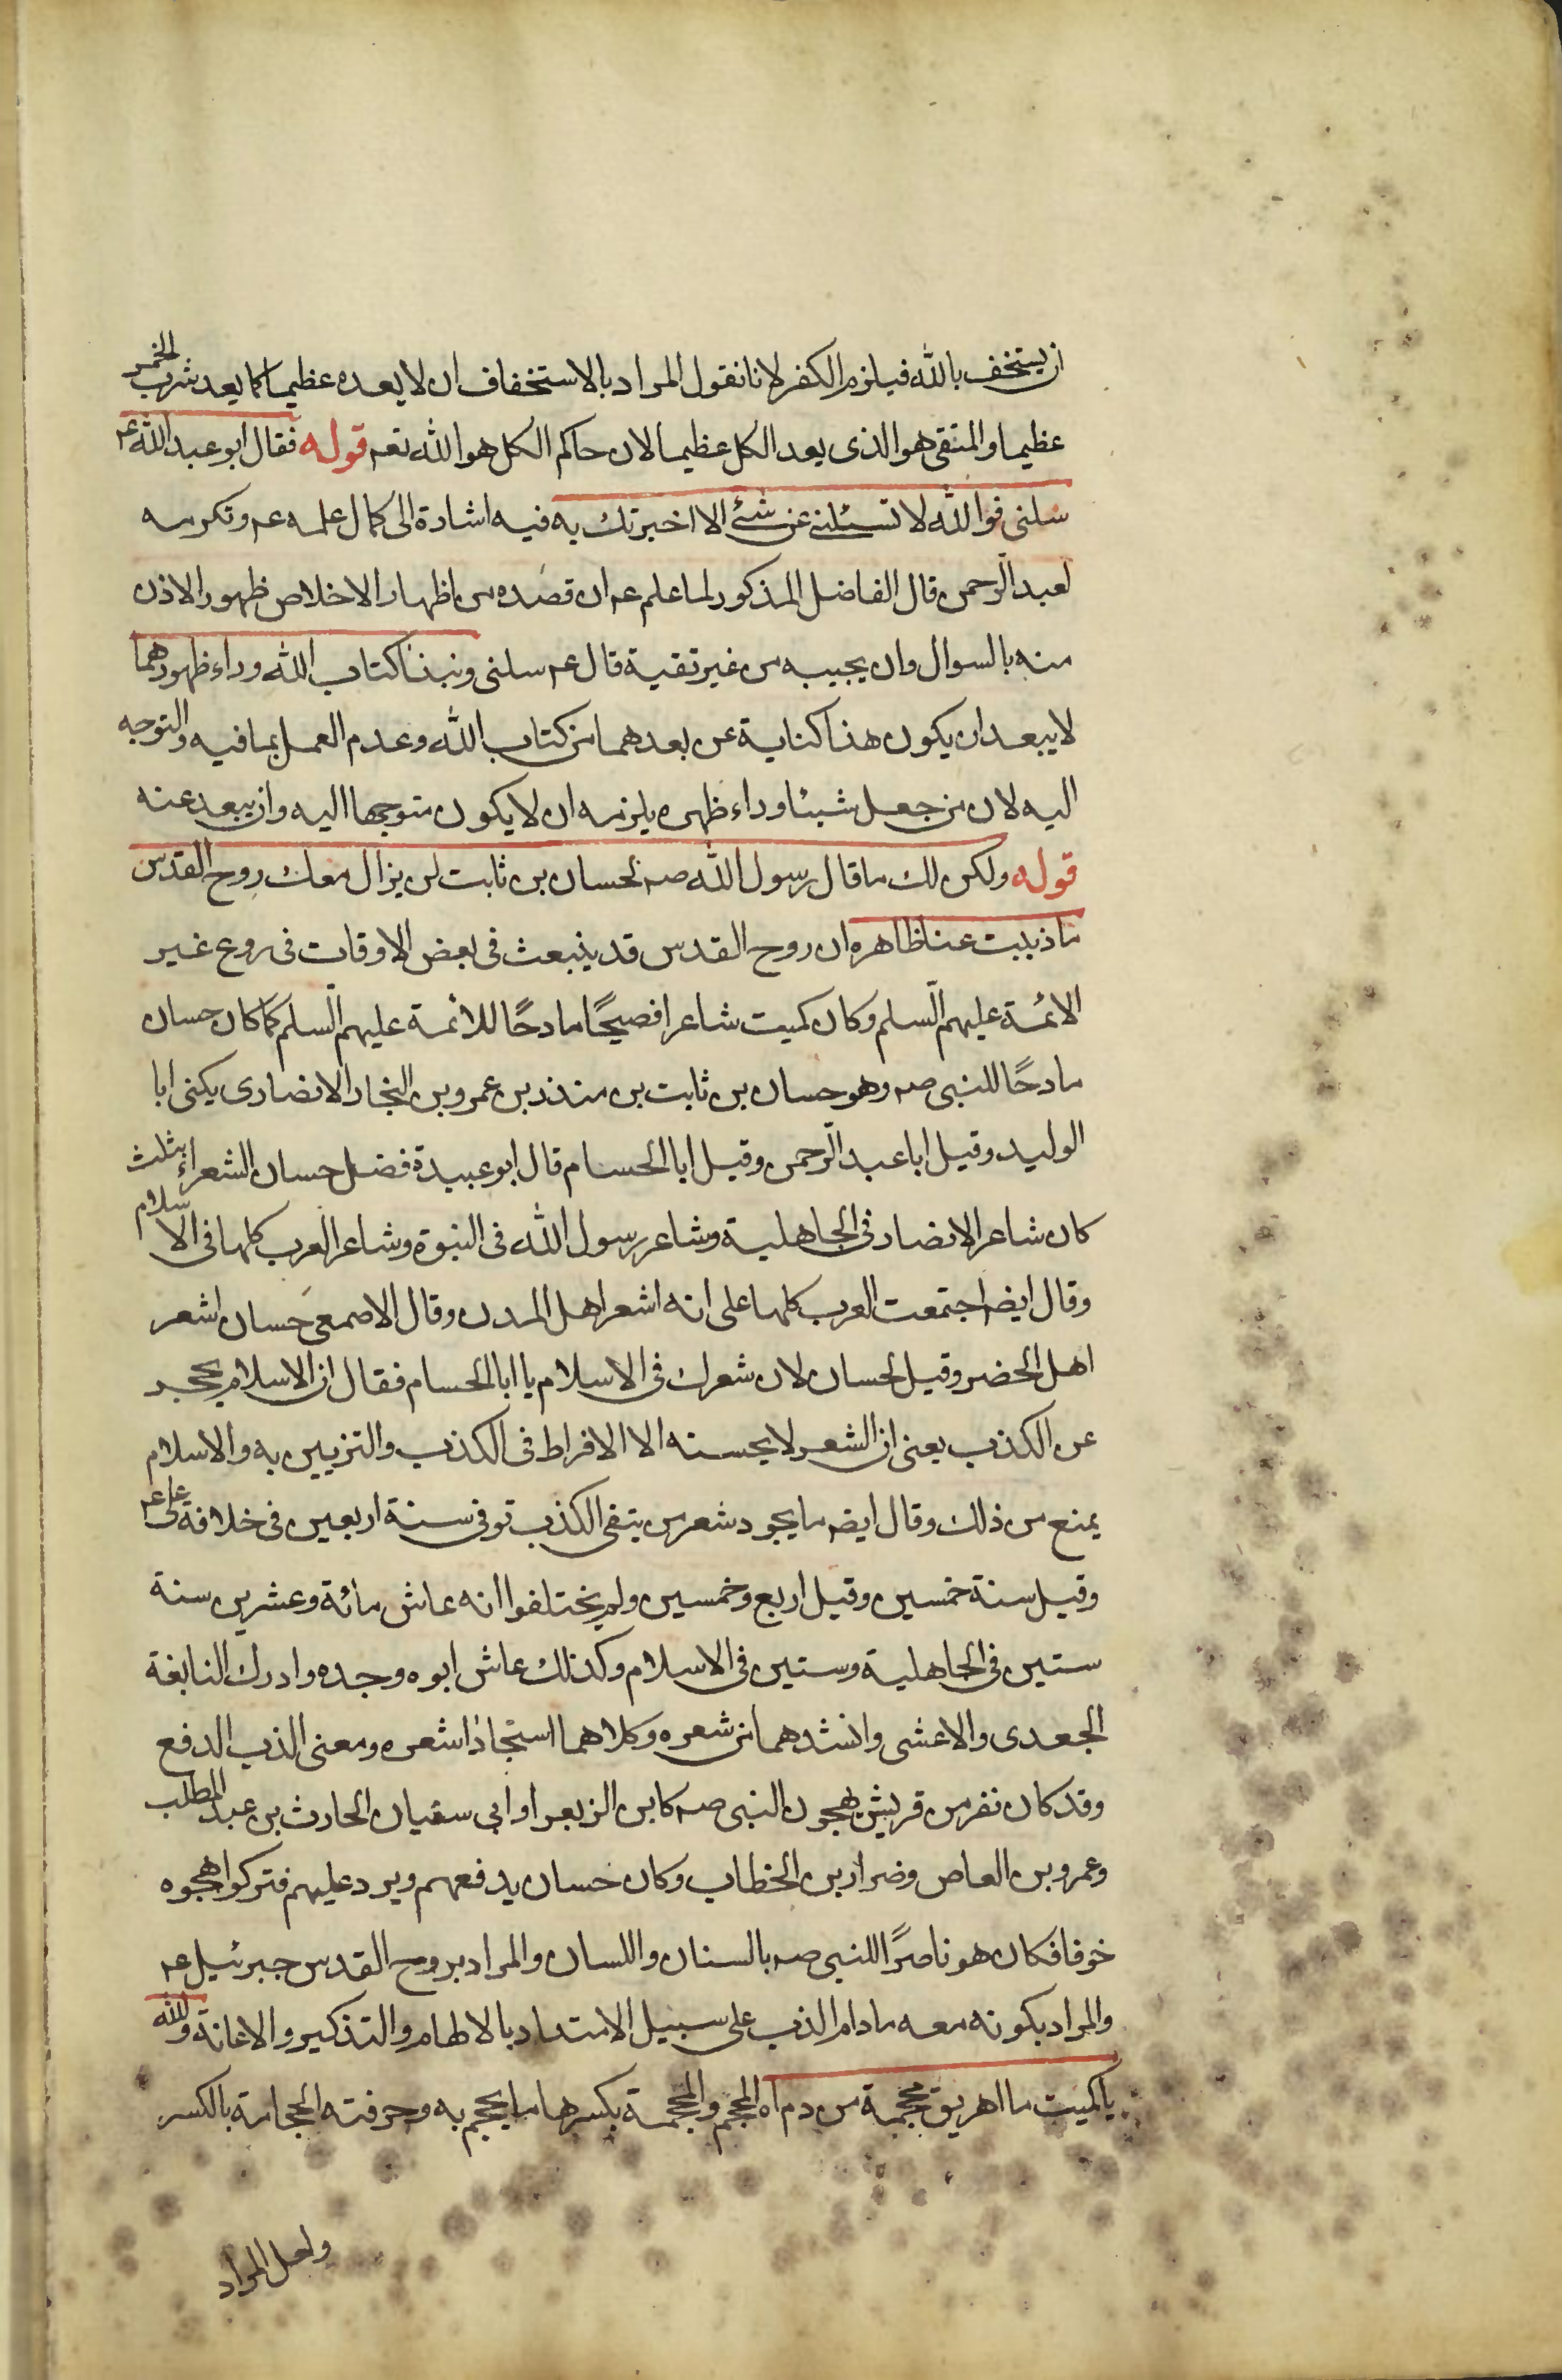 ان يستخف بالله فيلزم الكفر لانا نقول المراد بالاستخفاف ان لا يعده عظيما كما يعد شرب الخمر
عظيما والمتقى هو الذى يعد الكل عظيما لان حاكم الكل هو الله تعم قوله فقال ابو عبد الله عم
سلنى فوالله لا تسئلنى عن شئ الا اخبرتك به فيه اشارة الى كمال علمه عم وتكرمه
لعبد الرحمن قال الفاضل المذكور لما علم عم ان قصده من اظهار الاخلاص ظهور الاذن
منه بالسوال وان يجيبه من غير تقية قال عم سلنى ونبذا كتاب الله وراء ظهورهما
لا يبعد ان يكون هذا كناية عن بعدهما من كتاب الله وعدم العمل بما فيه والتوجه
اليه لان من جعل شيئا وراء ظهره يلزمه ان لا يكون متوجها اليه وان يبعد عنه
قوله ولكن لك ما قال رسول الله صم لحسان بن ثابت لن يزال معك روح القدس
ما ذببت عنا ظاهره ان روح القدس قد ينبعث فى بعض الاوقات فى روع غير
الائمة عليهم السلم وكان كميت شاعرا فصيحًا مادحًا للائمة عليهم السلم كما كان حسان
مادحًا للنبى صم وهو حسان بن ثابت بن منذر بن عمرو بن النجار الانصارى يكنى ابا
الوليد وقيل ابا عبد الرحمن وقيل ابا الحسام قال ابو عبيدة فضل حسان الشعراء بثلث
كان شاعر الانصار فى الجاهلية وشاعر رسول الله فى النبوة وشاعر العرب كلها فى الاسلام
وقال ايضم اجتمعت العرب كلها على انه اشعر اهل المدن وقال الاصمعى حسان اشعر
اهل الحضر وقيل لحسان لان شعرك فى الاسلام يا ابا الحسام فقال ان الاسلام يحجر
عن الكذب يعنى ان الشعر لا يحسنه الا الافراط فى الكذب والتزيين به والاسلام
يمنع من ذلك وقال ايضم ما يجود شعر من يتقى الكذب توفى سنة اربعين فى خلافة على عم
وقيل سنة خمسين وقيل اربع وخمسين ولم يختلفوا انه عاش مائة وعشرين سنة
ستين فى الجاهلية وستين فى الاسلام وكذلك عاش ابوه وجده وادرك النابغة
الجعدى والاعشى وانشدهما من شعره وكلاهما استجاذا شعره ومعنى الذب الدفع
وقد كان نفر من قريش يهجون النبى صم كابن الزبعرا وابى سفيان الحارث بن عبد المطلب
وعمرو بن العاص وضرار بن الخطاب وكان حسان يدفعهم ويرد عليهم فتركوا هجوه
خوفا فكان هو ناصرًا للنبى صم بالسنان واللسان والمراد بروح القدس جبرئيل عم
والمراد بكونه معه مادام الذب على سبيل الامتداد بالالهام والتذكير والاعانة والله
يا كميت ما اهريق محجمة من دم اه المحجم والمحجمة بكسرهما ما يحجم به وحرفته الحجامة بالكسر
ولعل المراد